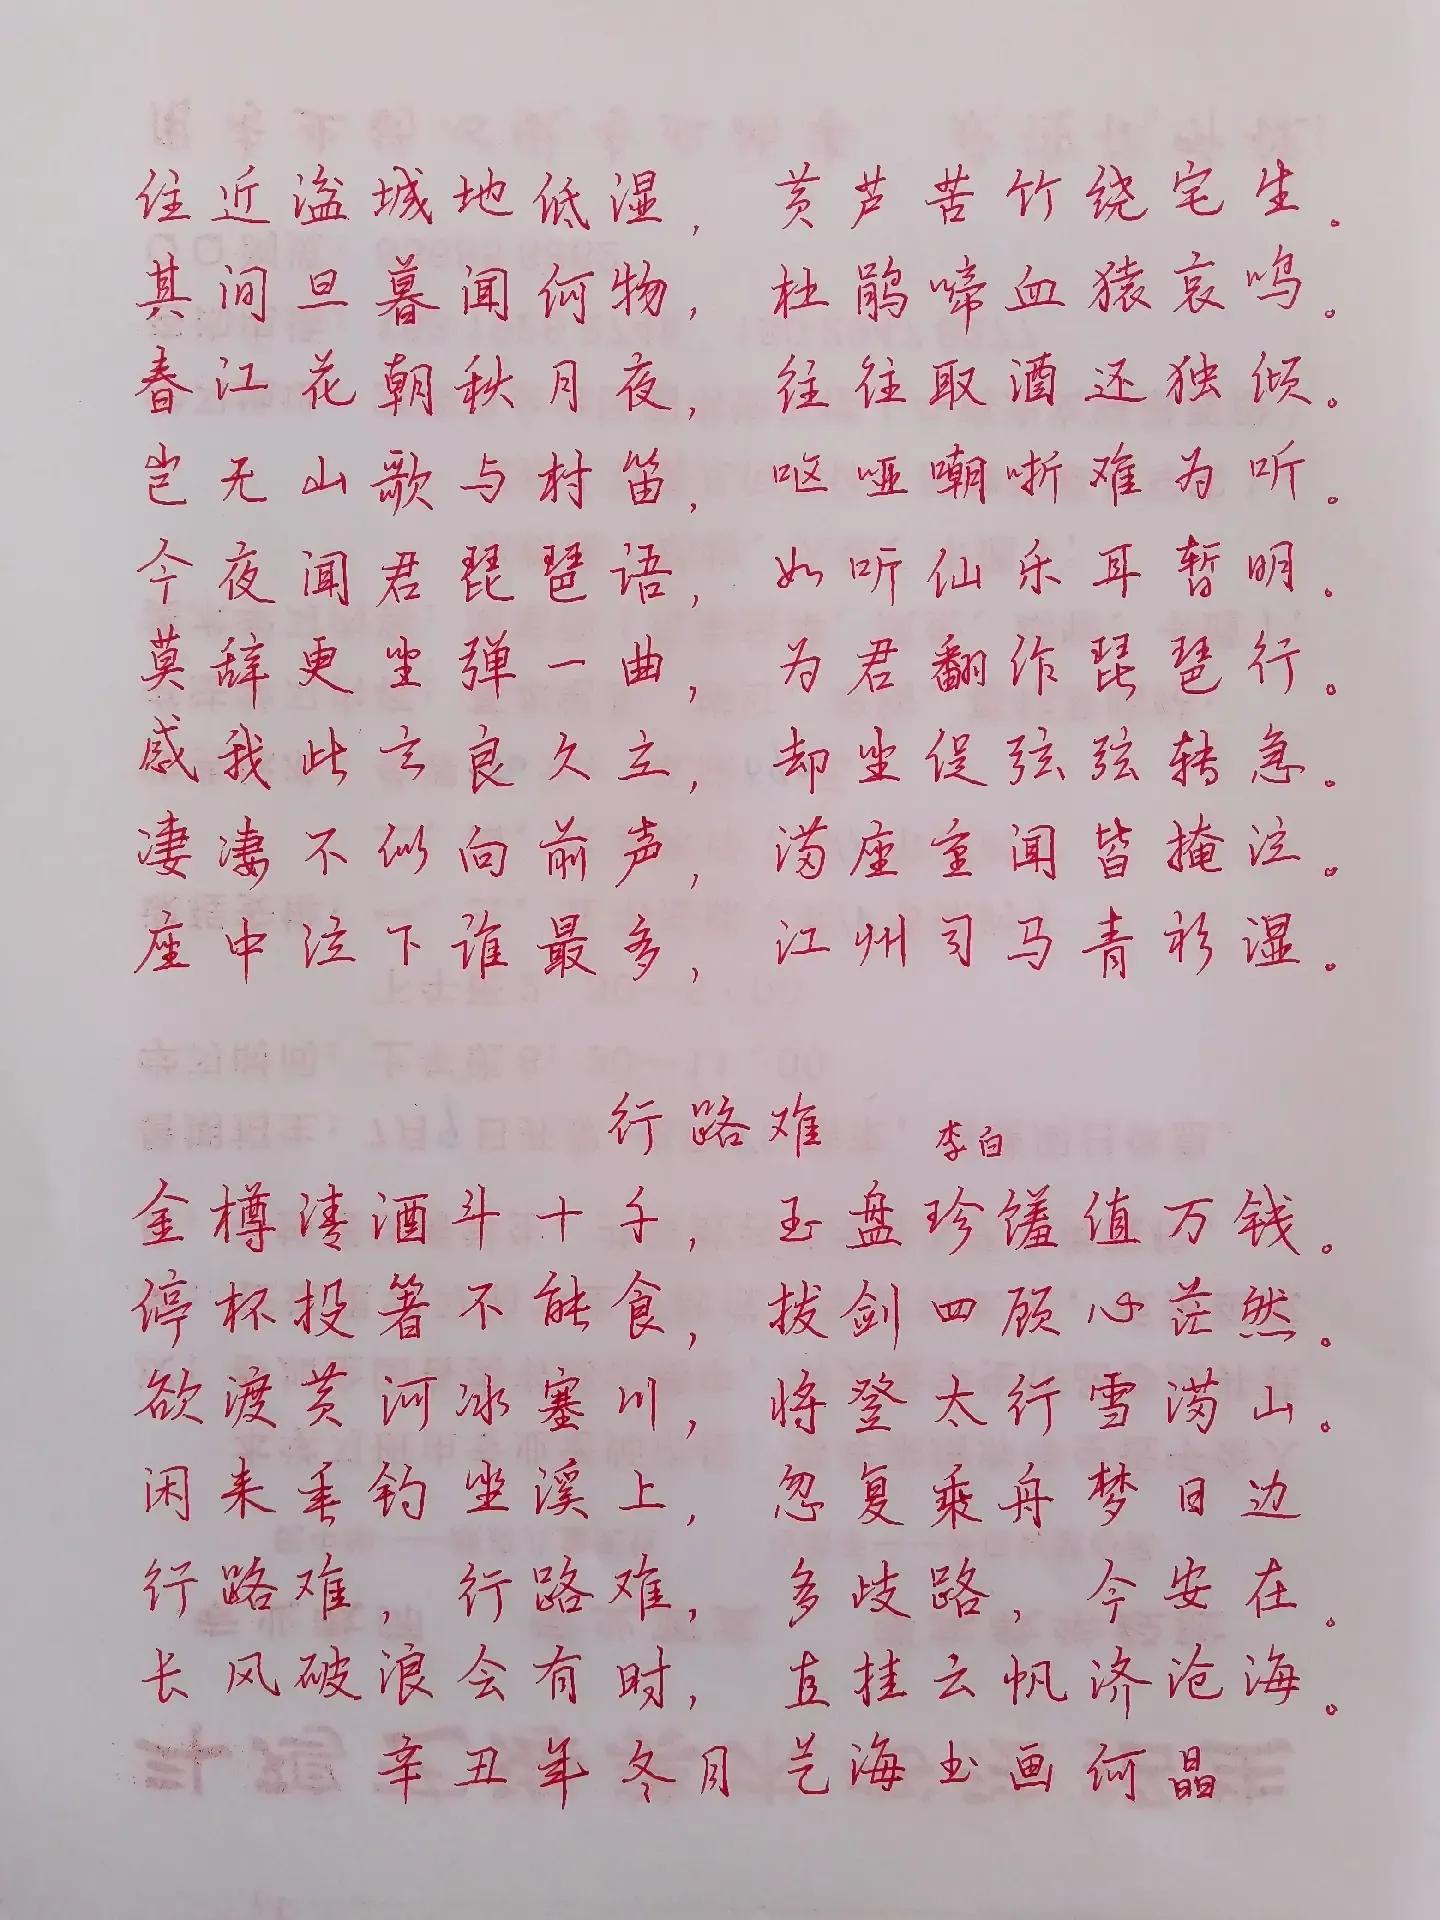 住近湓城地低湿，黄芦苦竹绕宅生。
其间旦暮闻何物，杜鹃啼血猿哀鸣。
春江花朝秋月夜，往往取酒还独倾。
岂无山歌与村笛，呕哑嘲哳难为听。
今夜闻君琵琶语，如听仙乐耳暂明。
莫辞更坐弹一曲，为君翻作琵琶行。
感我此言良久立，却坐促弦弦转急。
凄凄不似向前声，满座重闻皆掩泣。
座中泣下谁最多，江州司马青衫湿。
行路难 李白
金樽清酒斗十千，玉盘珍馐值万钱。
停杯投箸不能食，拔剑四顾心茫然。
欲渡黄河冰塞川，将登太行雪满山。
闲来垂钓坐溪上，忽复乘舟梦日边
行路难，行路难，多歧路，今安在。
长风破浪会有时，直挂云帆济沧海。
辛丑年冬月艺海书画何晶